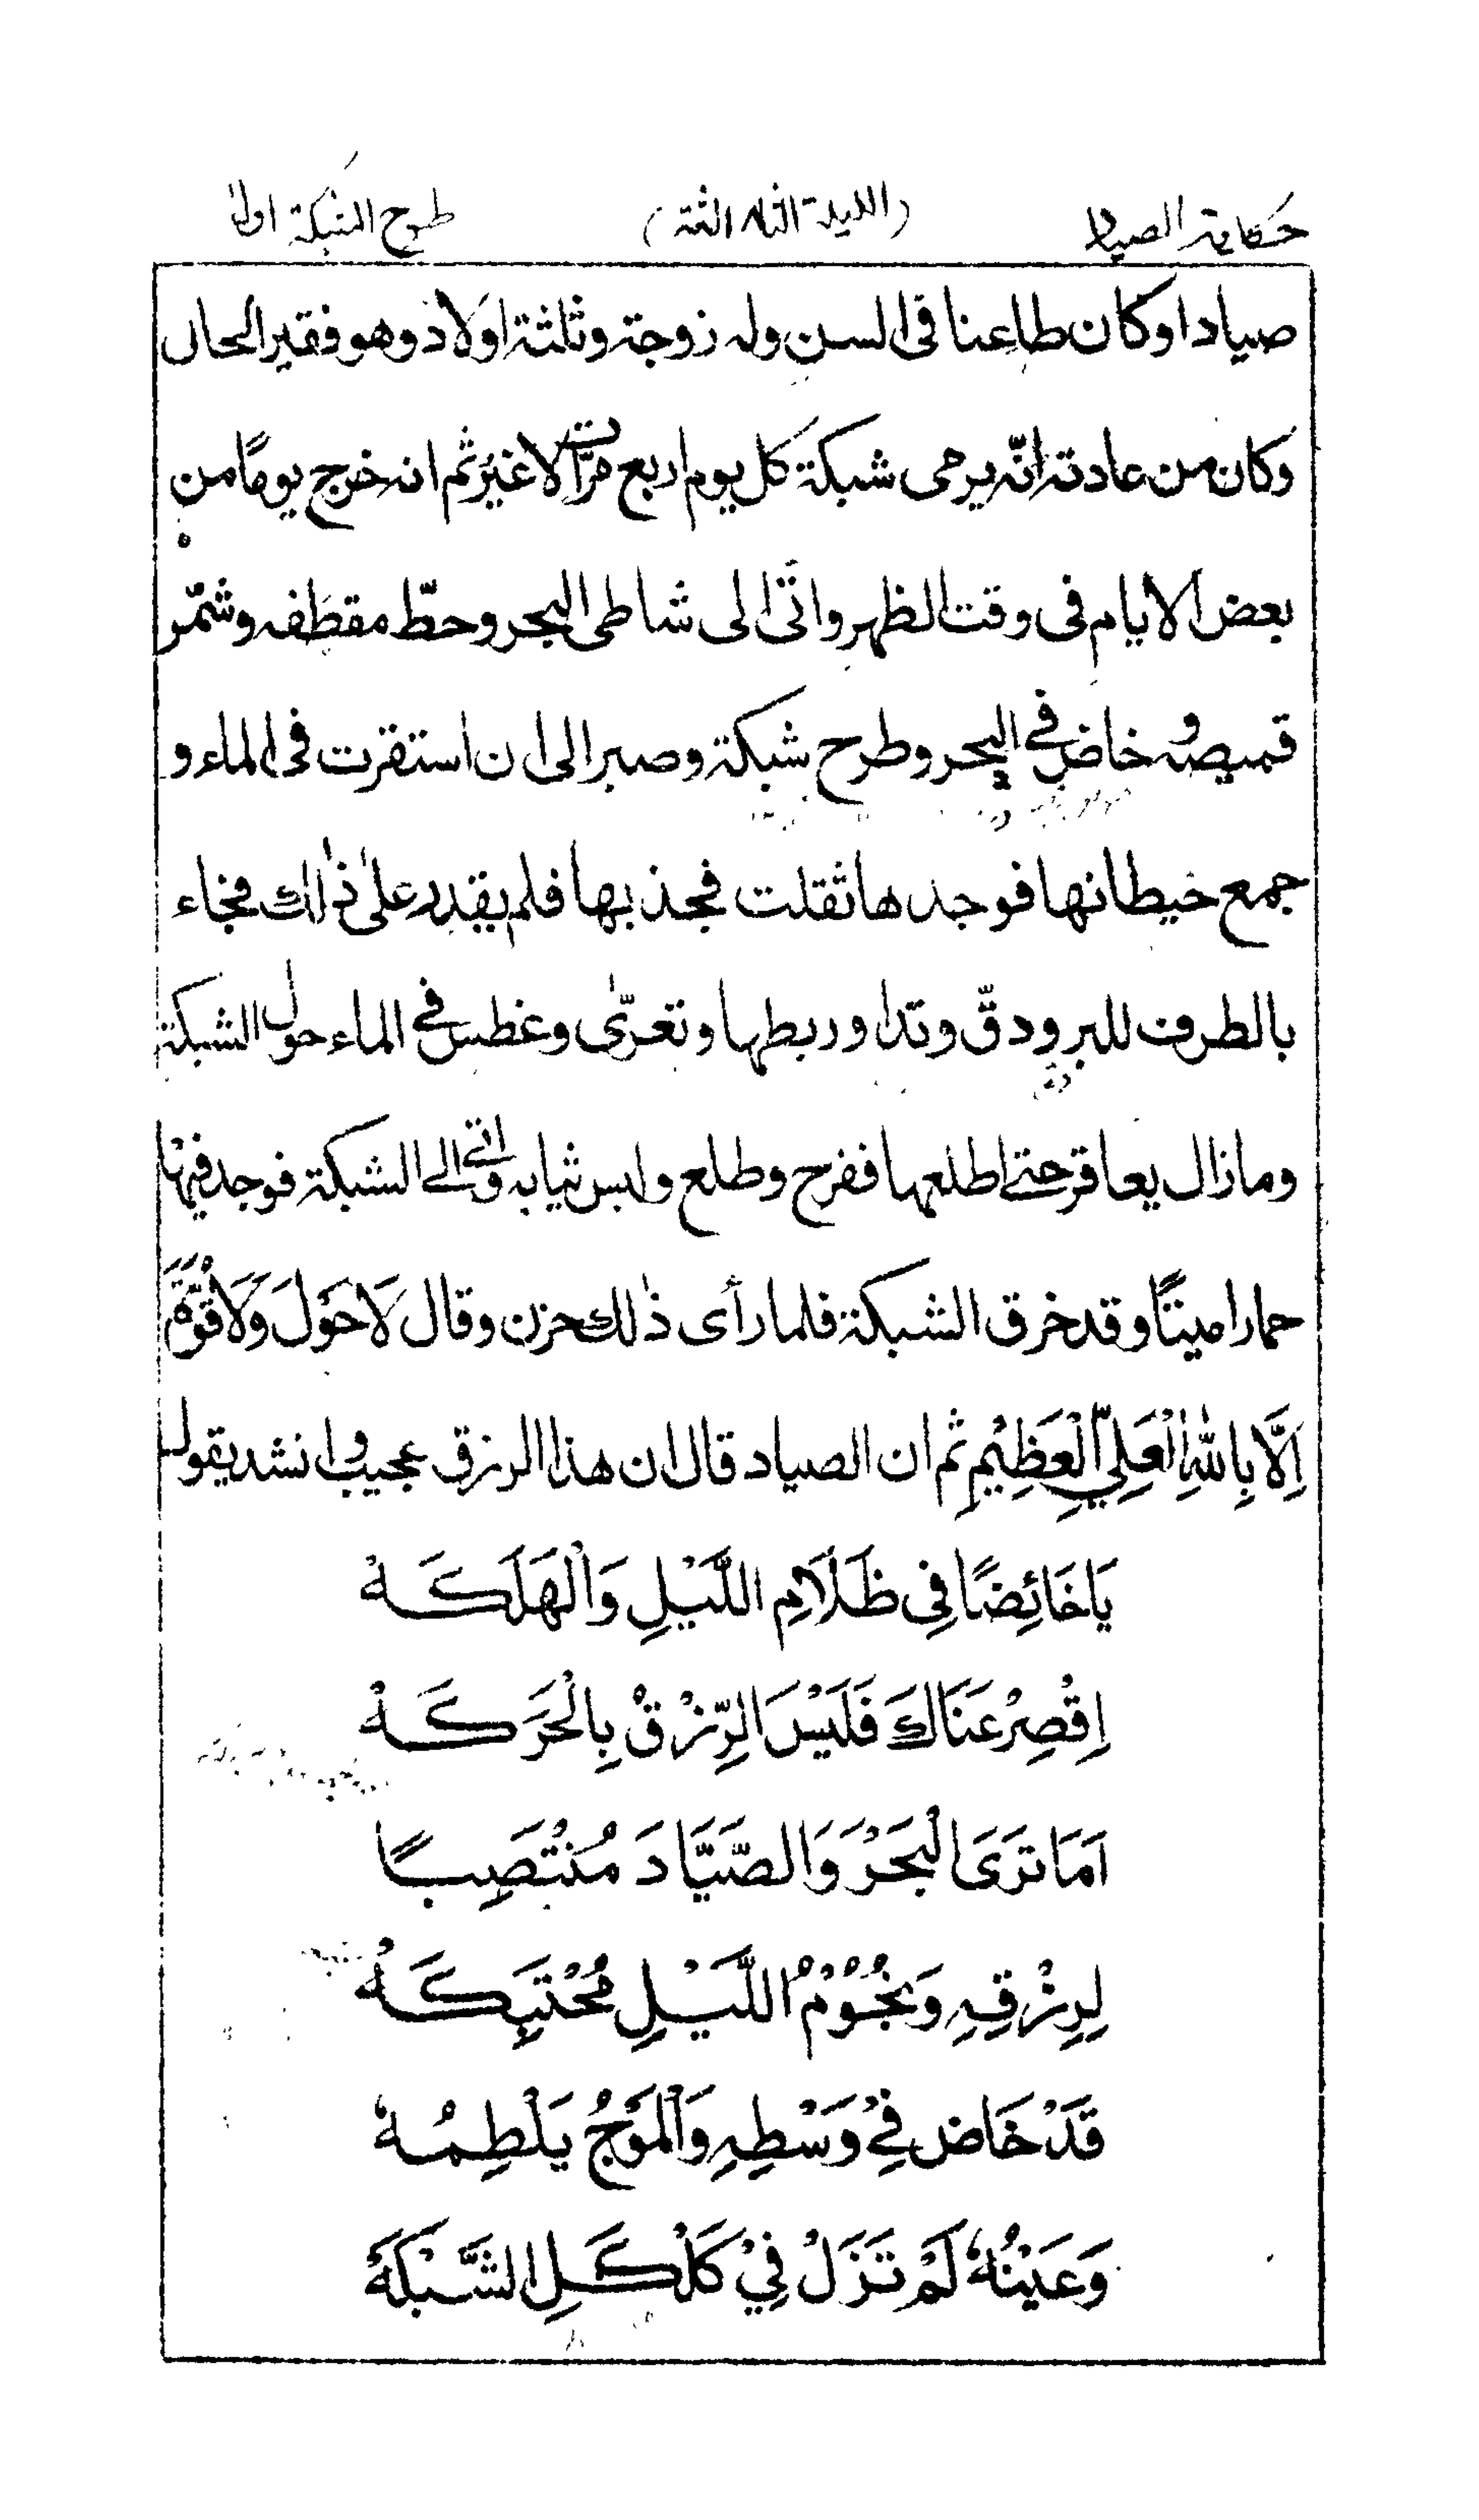 حكاية الصياد (الليلة الثالثة) طرح الشبكة اولا
صيادا وكان طاعنا في السن وله زوجة وثلثة اولاد وهو فقير الحال
وكان من عادته انّه يرمى شبكة كل يوم اربع مرّات لا غير ثم انه خرج يوماً من
بعض الايام فى وقت الظهر واتَى الى شاطى البحر وحطّ مقطفه وشمّر
قميصه وخاض فى البحر وطرح شبكة وصبر الى ان استقرت فى الماء و
جمع خيطانها فوجدها ثقلت فجذبها فلم يقدر على ذٰلك فجاء
بالطرف للبر ودقّ وتدا وربطها وتعرّى وغطس فى الماء حول الشبكة
وما زال يعاقر حتى اطلعها ففرح وطلع ولبس ثيابه واتى الى الشبكة فوجد فيها
حمارا ميتاً وقد خرق الشبكة فلما رأى ذٰلك حزن وقال لَا حَوْلَ وَلَا قُوَّةَ
اِلَّا بِاللّٰهِ الْعَلِىِّ الْعَظِيْمِ ثم ان الصياد قال ان هذا الرزق عجيب وانشد يقول
يَا خَائِضًا فِى ظَلَامِ اللَّيْلِ وَالْهَلَكَهْ
اِقْصِرْ عَنَاكَ فَلَيْسَ الرِّزْقُ بِالْحَرَكَهْ
اَمَا تَرَى الْبَحْرَ وَالصَّيَّادَ مُنْتَصِبًا
لِرِزْقِهِ وَنُجُوْمُ اللَّيْلِ مُحْتَبِكَهْ
قَدْ خَاضَ فِيْ وَسْطِهِ وَالْمَوْجُ يَلْطِمُهُ
وَعَيْنُهُ لَمْ تَزَلْ فِيْ كَلْكَلِ الشَّبَكَهْ